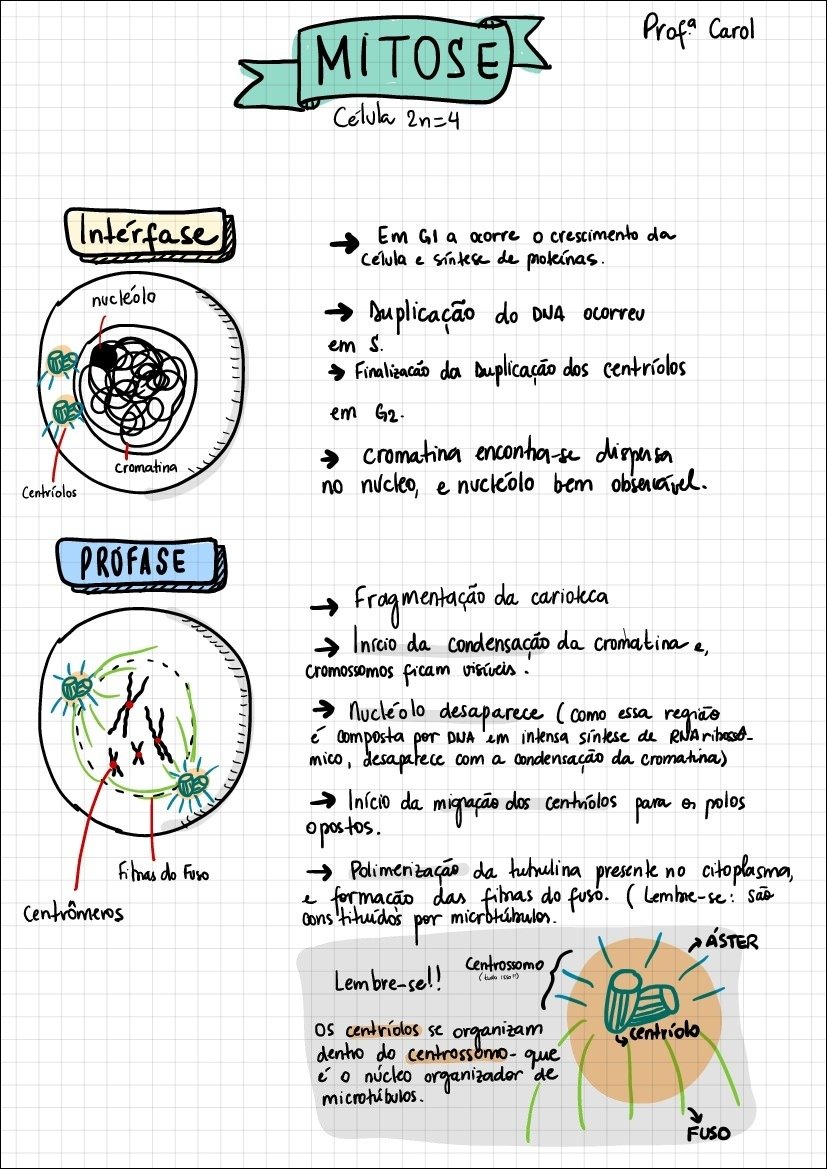 Profª Carol
MITOSE
Célula 2n=4
Intérfase
→ Em G1 a ocorre o crescimento da
célula e síntese de proteínas.
nucléolo
→ Duplicação do DNA ocorreu
em S.
→ Finalização da Duplicação dos centríolos
em G2.
cromatina
Centríolos
→ Cromatina encontra-se dispersa
no núcleo, e nucléolo bem observável.
PRÓFASE
→ Fragmentação da carioteca
→ Início da condensação da cromatina e,
cromossomos ficam visíveis.
→ Nucléolo desaparece (como essa região
é composta por DNA em intensa síntese de RNA ribossô-
mico, desaparece com a condensação da cromatina)
→ Início da migração dos centríolos para os polos
opostos.
Fibras do Fuso
Centrômeros
→ Polimerização da tubulina presente no citoplasma,
e formação das fibras do fuso. (Lembre-se: são
constituídos por microtúbulos.
Lembre-se!!
Centrossomo
(tudo isso!!)
ÁSTER
centríolo
Os centríolos se organizam
dentro do centrossomo - que
é o núcleo organizador de
microtúbulos.
FUSO